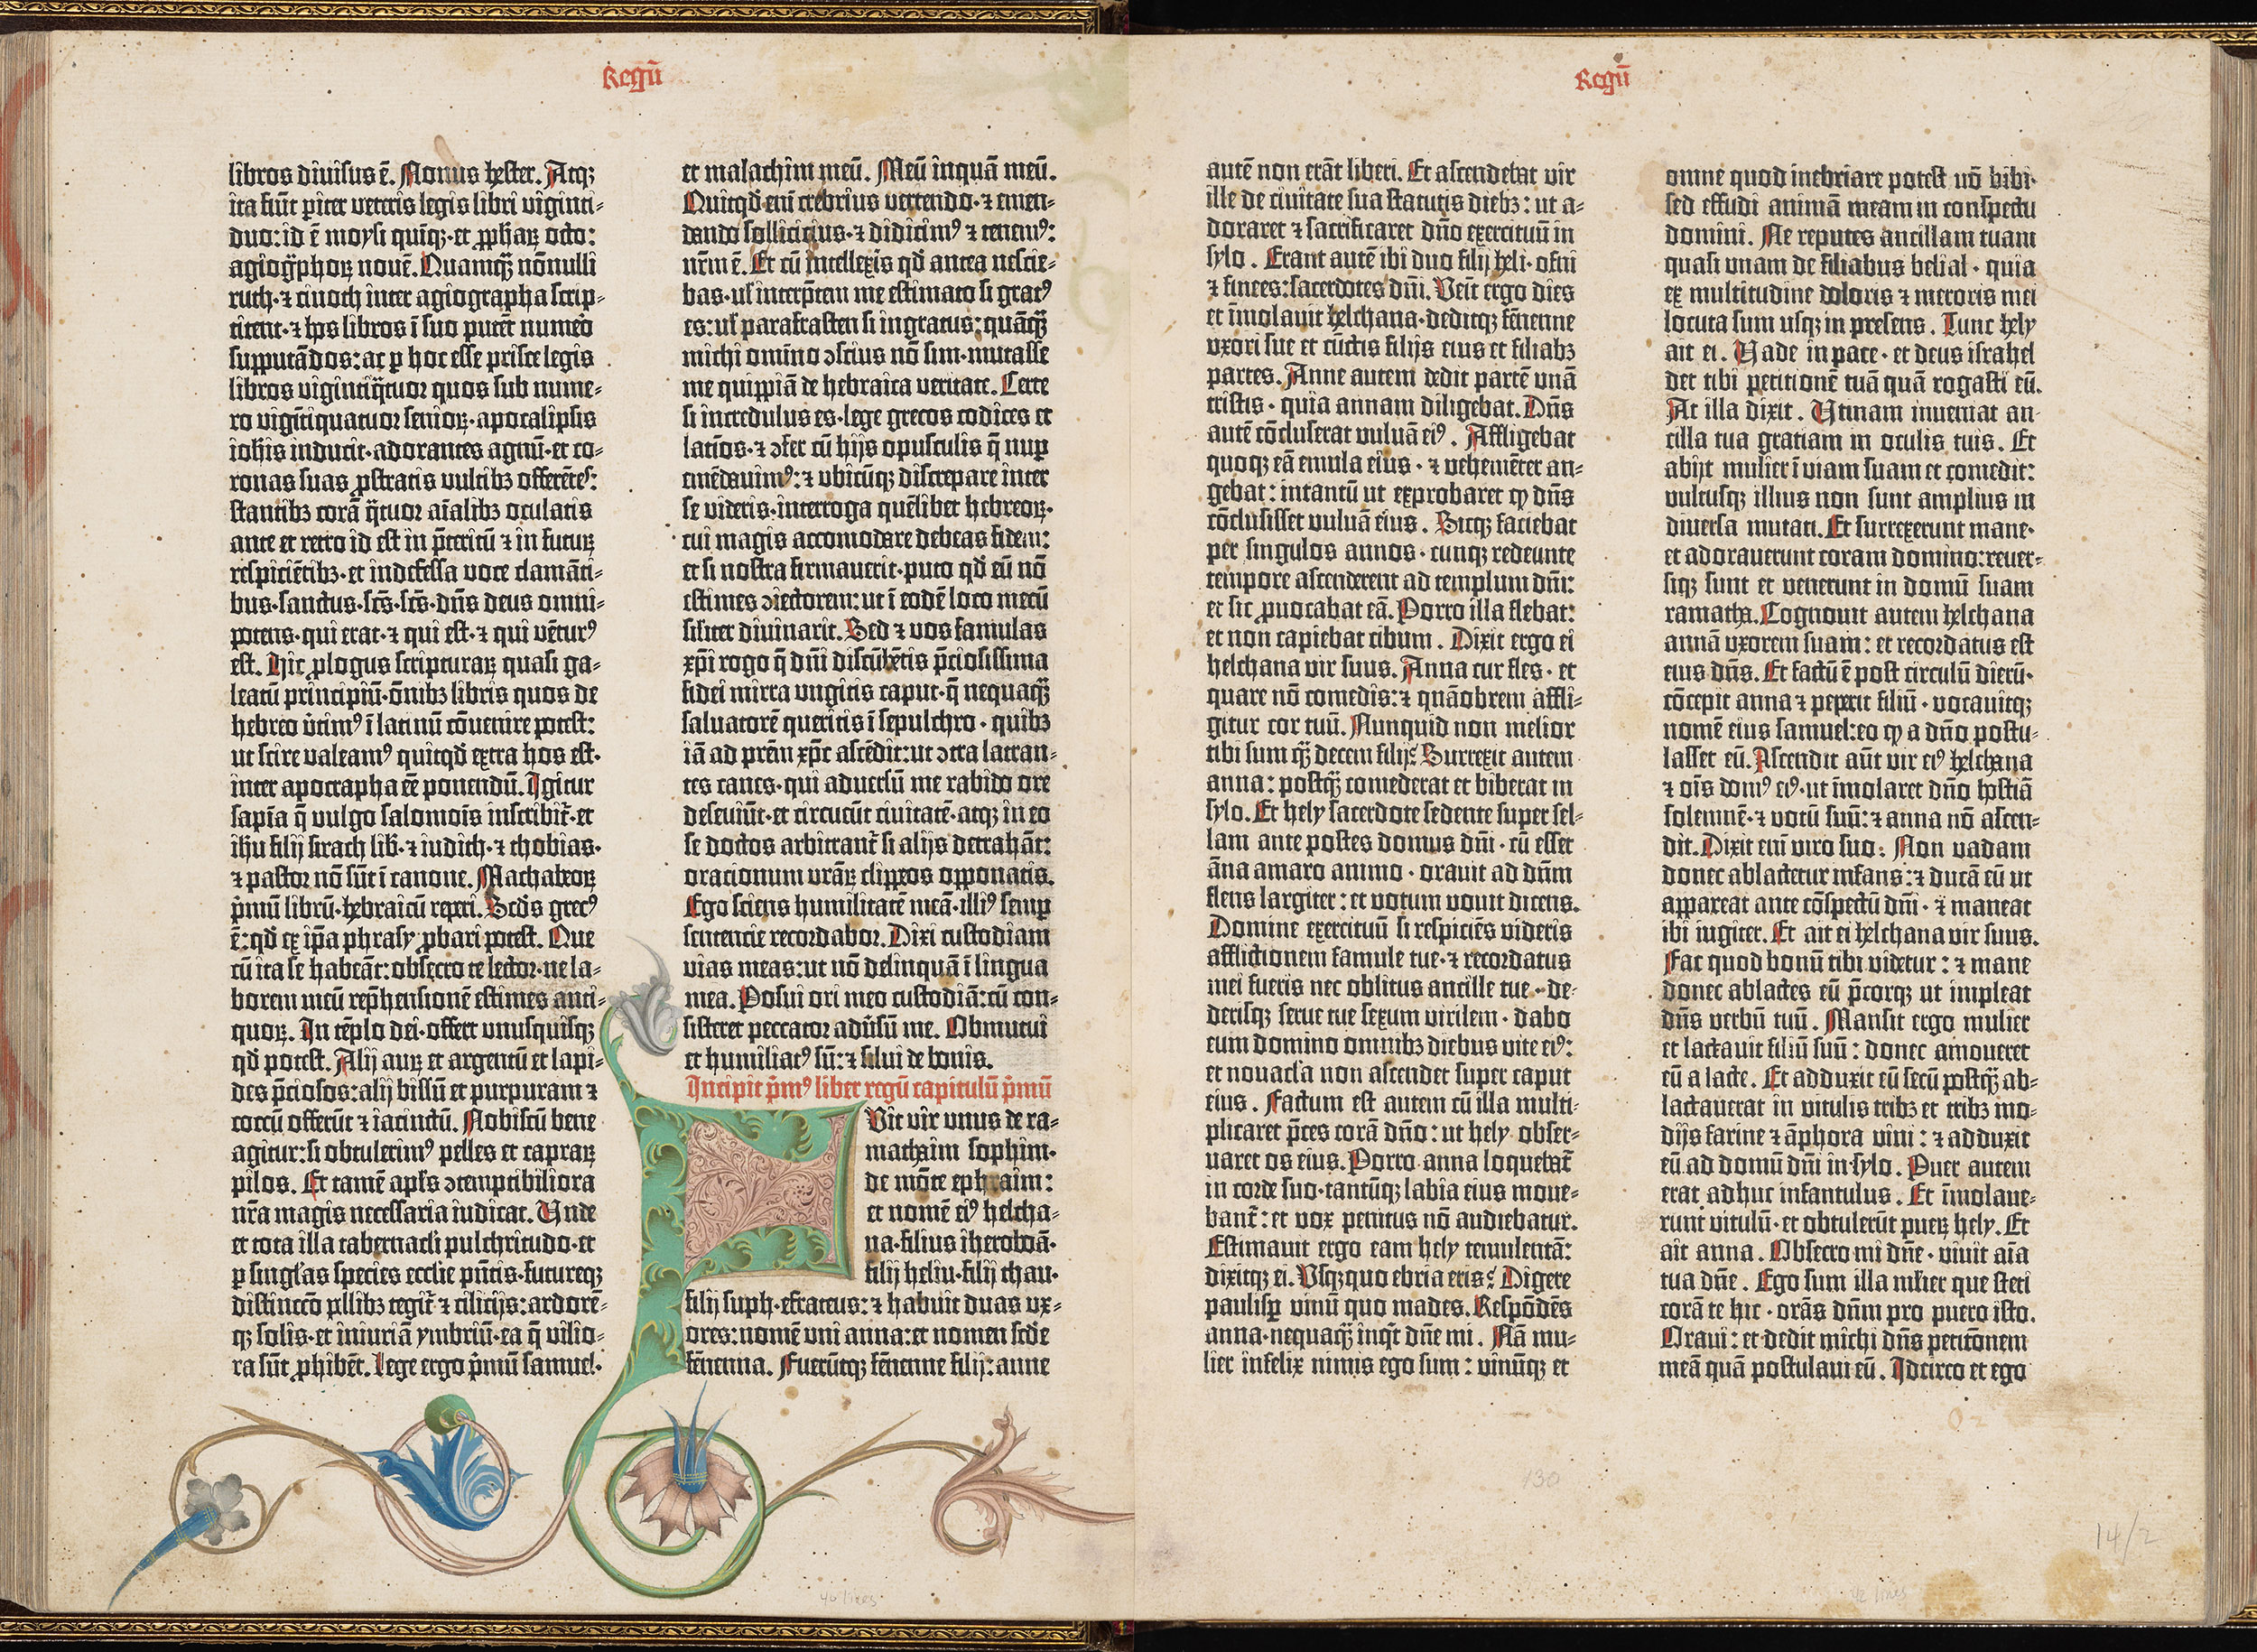 Regū
libros divisus ē. Nonus hester. Atq;
ita fiūt pīter veteris legis libri viginti-
duo: id ē moysi quinq;·et ꝓphaꝝ octo:
agiog̈phoꝝ novē. Quamq̈ȝ nōnulli
ruth·⁊ cinoth inter agiographa scrip-
titent·⁊ hos libros ī suo putēt numeᵒ
supputādos: ac ꝑ hoc esse prisce legis
libros vigintiq̈tuor quos sub nume-
ro vigīti quatuor senioꝝ·apocalipsis
iohīs inducit·adorantes agnū·et co-
ronas suas ꝓstratis vultibȝ offerētes:
stantibȝ corā q̈tuor aīalibȝ oculatis
ante et retro id est in p̄teritū ⁊ in futurꝝ
respiciētibȝ·et indefessa voce clamāti-
bus·sanctus·sc̄s·sc̄s·dn̄s deus omni-
potens·qui erat·⁊ qui est·⁊ qui vēturꝰ
est. Hic ꝓlogus scripturaꝝ quasi ga-
leatū principiū·ōnibȝ libris quos de
hebreo v̄timꝰ ī latinū cōvenire potest:
ut scire valeamꝰ quicqd̄ extra hos est·
inter apocrapha eē ponendū. Igitur
sapīa q̄ vulgo salomois inscribit̄·et
ihū filij sirach lib̄·⁊ iudich·⁊ thobias·
⁊ pastor nō sūt ī canone. Machabeoꝝ
p̄mū librū·hebraicū reperi. Scd̄s grecꝰ
ē: qd̄ ex ip̄a phrasy ꝓbari potest. Que
cū ita se habeāt: obsecro te lector·ne la-
borem meū rep̄hensionē estimes anti-
quoꝝ. In tēplo dei·offert unusquisq;
qd̄ potest. Alij auꝝ et argentū et lapi-
des p̄ciosos: alij bissū et purpuram ⁊
coccū offerūt ⁊ iacinctū. Nobiscū bene
agitur: si obtulerimꝰ pelles et capraꝝ
pilos. Et tamē apl̄s ↄtemptibiliora
nr̄a magis necessaria iudicat. Unde
et tota illa tabernacl̄i pulchritudo·et
ꝑ singl̄as species ecclie pn̄tis·futureq;
distinccō pllibȝ tegit̄ ⁊ cilicijs: ardorē-
q; solis·et iniuriā ymbriū·ea q̄ vilio-
ra sūt ꝓhibēt. Lege ergo p̄mū samuel·
et malachim meū. Meū inquā meū.
Quicqd̄ enī crebrius vertendo·⁊ emen-
dando sollicitius·⁊ didicimꝰ ⁊ tenemꝰ:
nr̄m ē. Et cū intellexis qd̄ antea nescie-
bas·ul̄ interp̄tem me estimato si gratꝰ
es: ul̄ parafrasten si ingratus: quāq̈ȝ
michi omīno ↄscius nō sim·mutasse
me quippiā de hebraica veritate. Certe
si incredulus es·lege grecos codices et
latīos·⁊ ↄfer cū hijs opusculis q̄ nuꝑ
emēdavimꝰ: ⁊ ubicūq; discrepare inter
se videris·interroga quēlibet hebreoꝝ·
cui magis accomodare debeas fidem:
et si nostra firmaverit·puto qd̄ eū nō
estimes ↄiectorem: ut ī eodē loco mecū
siliter divinarit. Sed ⁊ vos famulas
xp̄i rogo q̄ dn̄i discūbētis p̄ciosissima
fidei mirra ungitis caput·q̄ nequaq̈ȝ
salvatorē queritis ī sepulchro·quibȝ
iā ad prēm xp̄c ascēdit: ut ↄtra latran-
tes canes·qui adversū me rabido ore
deseviūt·et circueūt civitatē·atq; in eo
se doctos arbitrant̄ si alijs detrahāt:
oracionum vr̄aꝝ clippeos opponatis.
Ego sciens humilitatē meā·illiꝰ semꝑ
sentencie recordabor. Dixi custodiam
vias meas: ut nō delinquā ī lingua
mea. Posui ori meo custodiā: cū con-
sisteret peccator adv̄sū me. Obmutui
et humiliatꝰ sū: ⁊ silui de bonis.
Incipit p̄mꝰ liber regū capitulū p̄mū
Fuit vir unus de ra-
mathaim sophim·
de mōte ephraim:
et nomē eiꝰ helcha-
na·filius iheroboā·
filij heliu·filij thau·
filij suph·efrateus: ⁊ habuit duas ux-
ores: nomē uni anna: et nomen sēde
fēnenna. Fuerūtq; fēnenne filij: anne
Regū
autē non erāt liberi. Et ascendebat vir
ille de civitate sua statutis diebȝ: ut a-
doraret ⁊ sacrificaret dn̄o exercituū in
sylo. Erant autē ibi duo filij heli·ofni
⁊ finees: sacerdotes dn̄i. Venīt ergo dies
et īmolavit helchana·deditq; fēnenne
uxori sue et cūctis filijs eius et filiabȝ
partes. Anne autem dedit partē unā
tristis·quia annam diligebat. Dn̄s
autē cōcluserat vulvā eiꝰ. Affligebat
quoq; eā emula eius·⁊ vehemēter an-
gebat: intantū ut exprobaret ꝙ dn̄s
cōclusisset vulvā eius. Sicq; faciebat
per singulos annos·cunq; redeunte
tempore ascenderent ad templum dn̄i:
et sic ꝓvocabat eā. Porro illa flebat:
et non capiebat cibum. Dixit ergo ei
helchana vir suus. Anna cur fles·et
quare nō comedis: ⁊ quāobrem affli-
gitur cor tuū. Nunquid non melior
tibi sum q̈ȝ decem filij? Surrexit autem
anna: postq̈ȝ comederat et biberat in
sylo. Et hely sacerdote sedente super sel-
lam ante postes domus dn̄i·cū esset
āna amaro animo·oravit ad dn̄m
flens largiter: et votum vovit dicens.
Domine exercituū si respiciēs videris
afflictionem famule tue·⁊ recordatus
mei fueris nec oblitus ancille tue·de-
derisq; serve tue sexum virilem·dabo
eum domino omnibȝ diebus vite eiꝰ:
et novacl̄a non ascendet super caput
eius. Factum est autem cū illa multi-
plicaret p̄ces corā dn̄o: ut hely obser-
varet os eius. Porro anna loquebat̄
in corde suo·tantūq; labia eius move-
bant̄: et vox penitus nō audiebatur.
Estimavit ergo eam hely temulentā:
dixitq; ei. Usq;quo ebria eris? Digere
paulisꝑ vinū quo mades. Respōdēs
anna·nequaq̈ȝ inqt̄ dn̄e mi. Nā mu-
lier infelix nimis ego sum: vinūq; et
omne quod inebriare potest nō bibi·
sed effudi animā meam in conspectu
domini. Ne reputes ancillam tuam
quasi unam de filiabus belial·quia
ex multitudine doloris ⁊ meroris mei
locuta sum usq; in presens. Tunc hely
ait ei. Vade in pace·et deus israhel
det tibi petitionē tuā quā rogasti eū.
At illa dixit. Utinam inveniat an-
cilla tua gratiam in oculis tuis. Et
abijt mulier ī viam suam et comedit:
vultusq; illius non sunt amplius in
diversa mutati. Et surrexerunt mane·
et adoraverunt coram domino: rever-
siq; sunt et venerunt in domū suam
ramatha. Cognovit autem helchana
annā uxorem suam: et recordatus est
eius dn̄s. Et factū ē post circulū dierū·
cōcepit anna ⁊ peperit filiū·vocavitq;
nomē eius samuel: eo ꝙ a dn̄o postu-
lasset eū. Ascendit aūt vir eiꝰ helchana
⁊ oīs domꝰ eiꝰ·ut īmolaret dn̄o hostiā
solemnē·⁊ votū suū: ⁊ anna nō ascen-
dit. Dixit enī viro suo: Non vadam
donec ablactetur infans: ⁊ ducā eū ut
appareat ante cōspectū dn̄i·⁊ maneat
ibi iugiter. Et ait ei helchana vir suus.
Fac quod bonū tibi videtur: ⁊ mane
donec ablactes eū p̄corq; ut impleat
dn̄s verbū tuū. Mansit ergo mulier
et lactavit filiū suū: donec amoveret
eū a lacte. Et adduxit eū secū postq̈ȝ ab-
lactaverat in vitulis tribȝ et tribȝ mo-
dijs farine ⁊ āphora vini: ⁊ adduxit
eū ad domū dn̄i in sylo. Puer autem
erat adhuc infantulus. Et īmolave-
runt vitulū·et obtulerūt pueꝝ hely. Et
ait anna. Obsecro mi dn̄e·vivit aīa
tua dn̄e. Ego sum illa ml̄ier que steti
corā te hic·orās dn̄m pro puero isto.
Oravi: et dedit michi dn̄s petitōnem
meā quā postulavi eū. Idcirco et ego
130
14/2
40 lines
42 lines